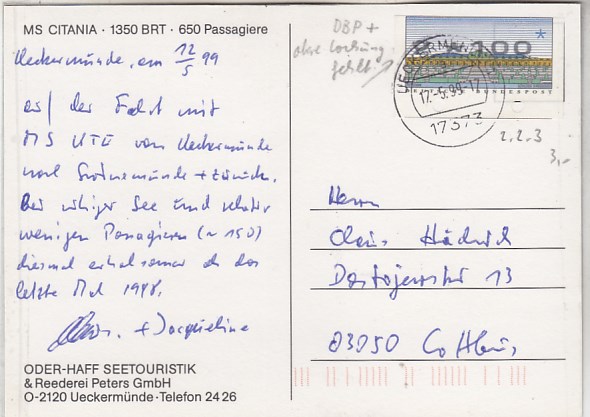 MS CITANIA · 1350 BRT · 650 Passagiere
Ueckermünde, am 12/5 99
auf der Fahrt mit
MS UTE von Ueckermünde
nach Swinemünde + zurück.
Bei ruhiger See und relativ
wenigen Passagieren (~150)
diesmal erholsamer als das
letzte Mal 1998.
+ Jacqueline
ODER-HAFF SEETOURISTIK
& Reederei Peters GmbH
O-2120 Ueckermünde · Telefon 24 26
DBP +
ohne
fehlt
100
BUNDESPOST
UECKERMÜNDE
17.-5.99-17
17373
2.2.3
3,-
Herrn
Claus
Dostojewstr 13
03050 Cottbus